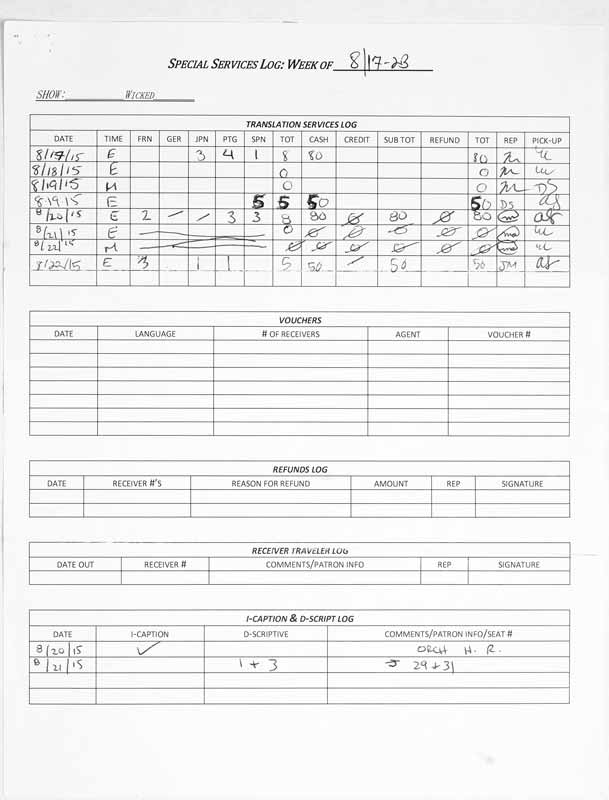 SPECIAL SERVICES LOG: WEEK OF 8/17-23
SHOW: WICKED
TRANSLATION SERVICES LOG
DATE TIME FRN GER JPN PTG SPN TOT CASH CREDIT SUB TOT REFUND TOT REP PICK-UP
8/17/15 E 3 4 1 8 80 80
8/18/15 E 0 0
8/19/15 M 0 0 DS
8-19-15 E 5 5 50 50 DS
8/20/15 E 2 — — 3 3 8 80 Ø 80 Ø 80
8/21/15 E 0 Ø Ø Ø Ø Ø
8/22/15 M Ø Ø Ø Ø Ø Ø
8/22/15 E 3 1 1 5 50 — 50 50 JM
VOUCHERS
DATE LANGUAGE # OF RECEIVERS AGENT VOUCHER #
REFUNDS LOG
DATE RECEIVER #'S REASON FOR REFUND AMOUNT REP SIGNATURE
RECEIVER TRAVELER LOG
DATE OUT RECEIVER # COMMENTS/PATRON INFO REP SIGNATURE
I-CAPTION & D-SCRIPT LOG
DATE I-CAPTION D-SCRIPTIVE COMMENTS/PATRON INFO/SEAT #
8/20/15 ✓ ORCH H. R.
8/21/15 1 + 3 29 + 31